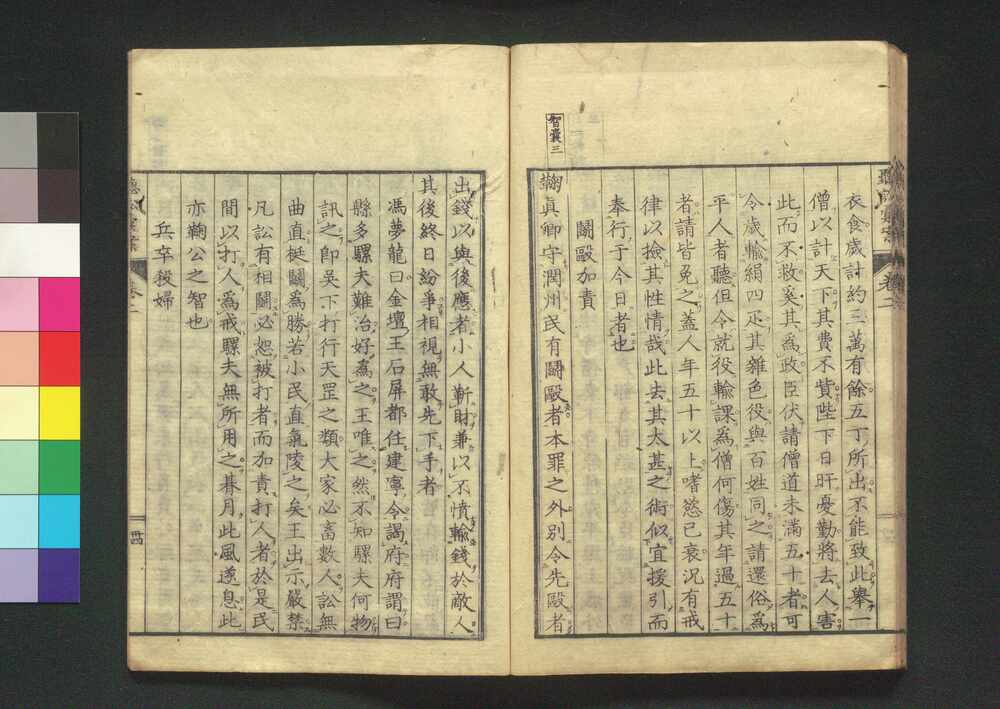 衣食歲計約三萬有餘五丁所出不能致此舉一
僧以計天下其費不貲陛下日旰憂勤將去人害
此而不救奚其為政臣伏請僧道未滿五十者可
令歲輸絹四疋其雜色役與百姓同之請還俗為
平人者聽但令就役輸課為僧何傷其年過五十
者請皆免之蓋人年五十以上嗜慾已衰況有戒
律以撿其性情哉此去其太甚之術似宜援引而
奉行于今日者也
鬭毆加責
智囊三
鞫真卿守潤州民有鬭毆者本罪之外別令先毆者
出錢以與後應者小人靳財兼以不憤輸錢於敵人
其後終日紛爭相視無敢先下手者
馮夢龍曰金壇王石屏都任建寧令謁府府謂曰
縣多騾夫難治好為之王唯之然不知騾夫何物
訊之即吳下打行天罡之類大家必畜數人訟無
曲直梃鬭為勝若小民直氣陵之矣王出示嚴禁
凡訟有相鬭必恕被打者而加責打人者於是民
間以打人為戒騾夫無所用之朞月此風遂息此
亦鞫公之智也
兵卒殺婦
卷二
四